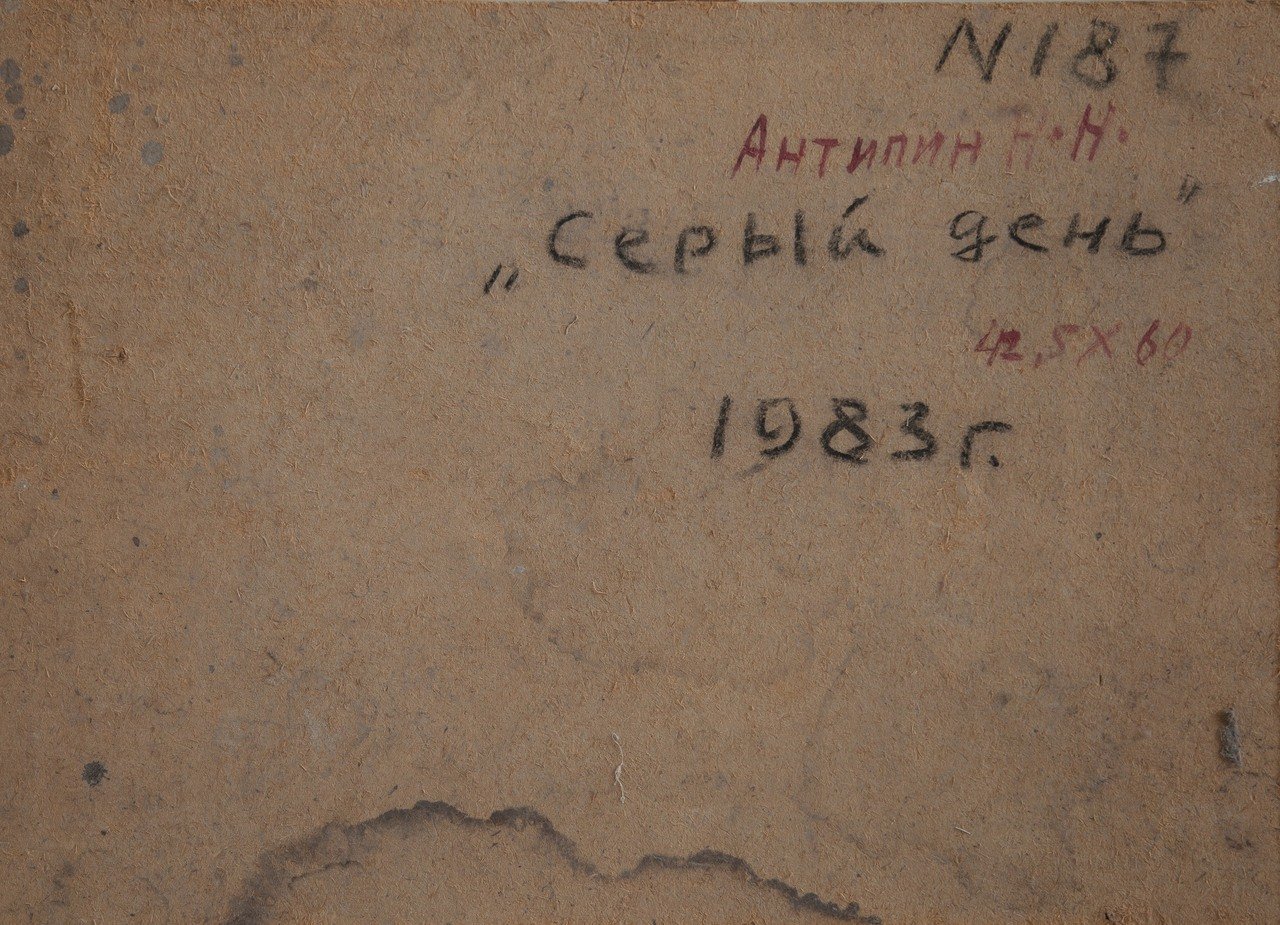 N187
Антипин Н.Н.
„Серый день"
42,5X60
1983 г.